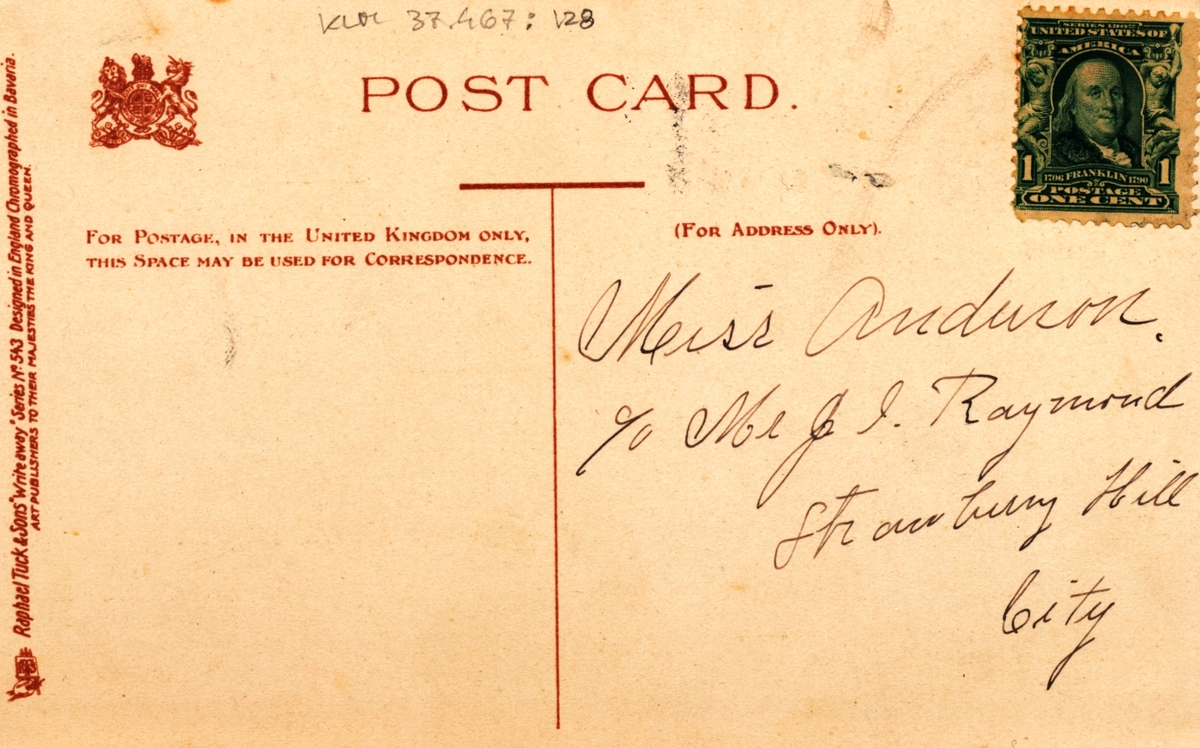 37.467:128
POST CARD.
SERIES 1902
UNITED STATES OF
AMERICA
1 1706 FRANKLIN 1790 1
POSTAGE
ONE CENT
FOR POSTAGE, IN THE UNITED KINGDOM ONLY,
THIS SPACE MAY BE USED FOR CORRESPONDENCE.
(FOR ADDRESS ONLY).
Miss Anderson.
c/o Mr J. I. Raymond
Strawberry Hill
City
Raphael Tuck & Sons' "Write away" Series No. 543 Designed in England Chromographed in Bavaria.
ART PUBLISHERS TO THEIR MAJESTIES THE KING AND QUEEN.